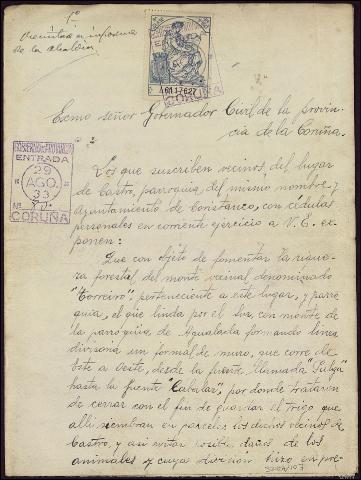 1º
á informe
de la alcaldía
A6117627
CORUÑA
Excmo señor Gobernador Civil de la provin-
cia de la Coruña.
ENTRADA
29
AGO.
33
Nº
CORUÑA
Los que suscriben vecinos del lugar
de Castro, parroquia, del mismo nombre y
Ayuntamiento de Coristanco, con cédulas
personales en corriente ejercicio a V. E. ex-
ponen:
Que con objeto de fomentar la rique-
za forestal del monte vecinal denominado
"Torreiro", perteneciente a este lugar, y parro
quia, el que linda por el Sur, con monte de
la parroquia de Agualada formando línea
divisoria un formal de muro, que corre de
Este a Oeste, desde la fuente llamada
hasta la fuente por donde trataron
de cerrar con el fin de guardar el trigo que
allí siembran en parcelas los dichos vecinos de
Castro, y así evitar posible daños de los
animales y cuya división hizo en pre-